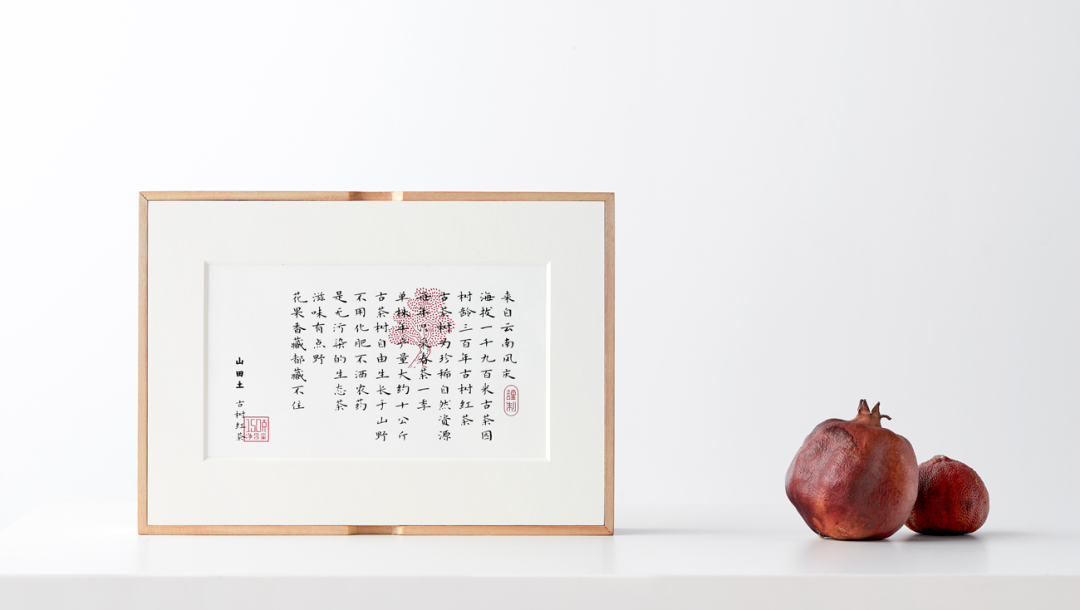 来自云南凤庆
謹制
海拔一千九百米古茶园
树龄三百年古树红茶
古茶树为珍稀自然资源
每年只采春茶一季
单株年产量大约十公斤
古茶树自由生长于山野
不用化肥不洒农药
是无污染的生态茶
滋味有点野
花果香藏都藏不住
山田土 古树红茶
150克